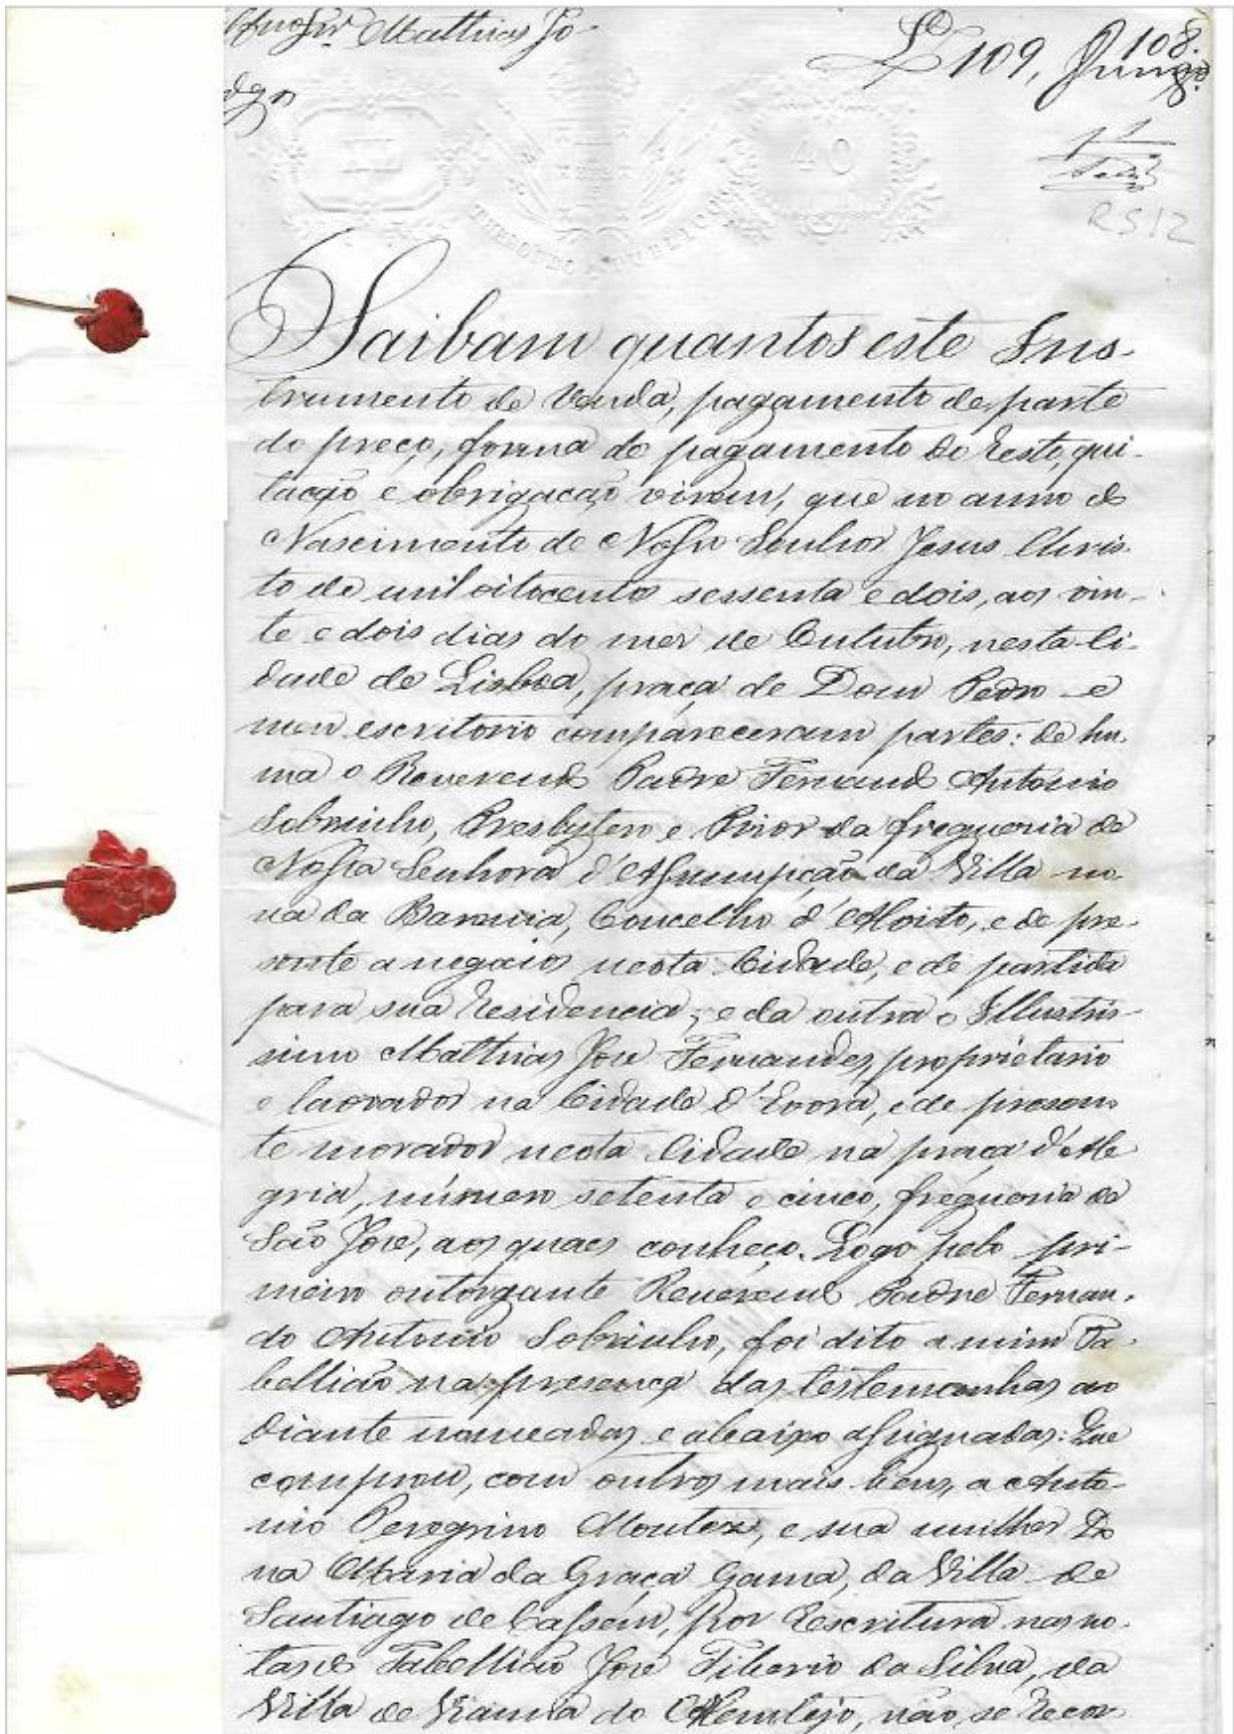 Mathias Jo-
L 109,
108.
40
THESOURO PUBLICO
RS12
Saibam quantos este Ins-
trumento de Venda, pagamento de parte
do preço, forma de pagamento do resto, qui-
tação e obrigação virem, que no anno do
Nascimento de Nosso Senhor Jesus Chris-
to de mil oitocentos sessenta e dois, aos vin-
te e dois dias do mez de Outubro, nesta Ci-
dade de Lisboa, praça de Dom Pedro e
meu escritorio compareceram partes: de hu-
ma o Reverendo Padre Fernando Antonio
Sobrinho, Presbytero e Prior da freguesia de
Nossa Senhora d'Assumpção da Villa no-
va da Baronia, Concelho d'Alvito, e de pre-
sente a negocios nesta Cidade, e de partida
para sua residencia, e da outra o Illustris-
simo Mathias José Fernandes, proprietario
e lavrador na Cidade d'Evora, e de presen-
te morador nesta Cidade na praça d'Ale
gria, número setenta e cinco, freguesia de
São José, aos quaes conheço. Logo pelo pri-
meiro outorgante Reverendo Padre Fernan-
do Antonio Sobrinho, foi dito a mim Ta-
bellião na presença das testemunhas ao
diante nomeadas e abaixo assignadas: Que
comprou, com outros mais bens, a Anto-
nio Peregrino Montez, e sua mulher Do
na Maria da Graça Gama, da Villa de
Santiago de Cassem, por Escritura nas no-
tas do Tabellião José Tiberio da Silva, da
Villa de Vianna do Alemtejo, não se recor